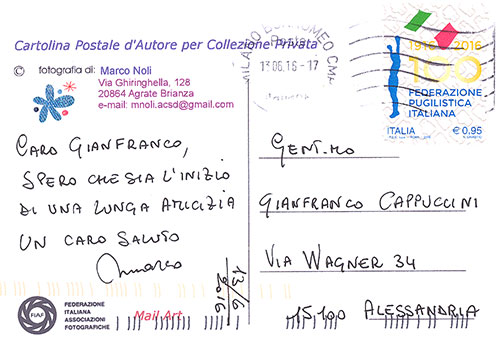 Cartolina Postale d'Autore per Collezione Privata
© fotografia di: Marco Noli
Via Ghiringhella, 128
20864 Agrate Brianza
e-mail: mnoli.acsd@gmail.com
CARO GIANFRANCO,
SPERO CHE SIA L'INIZIO
DI UNA LUNGA AMICIZIA
UN CARO SALUTO
Marco
13/6
2016
FIAF
FEDERAZIONE
ITALIANA
ASSOCIAZIONI
FOTOGRAFICHE
Mail Art
MILANO CMP
13.06.16-17
1916 2016
100
FEDERAZIONE
PUGILISTICA
ITALIANA
ITALIA €0.95
GENT.MO
GIANFRANCO CAPPUCCINI
VIA WAGNER 34
15100 ALESSANDRIA